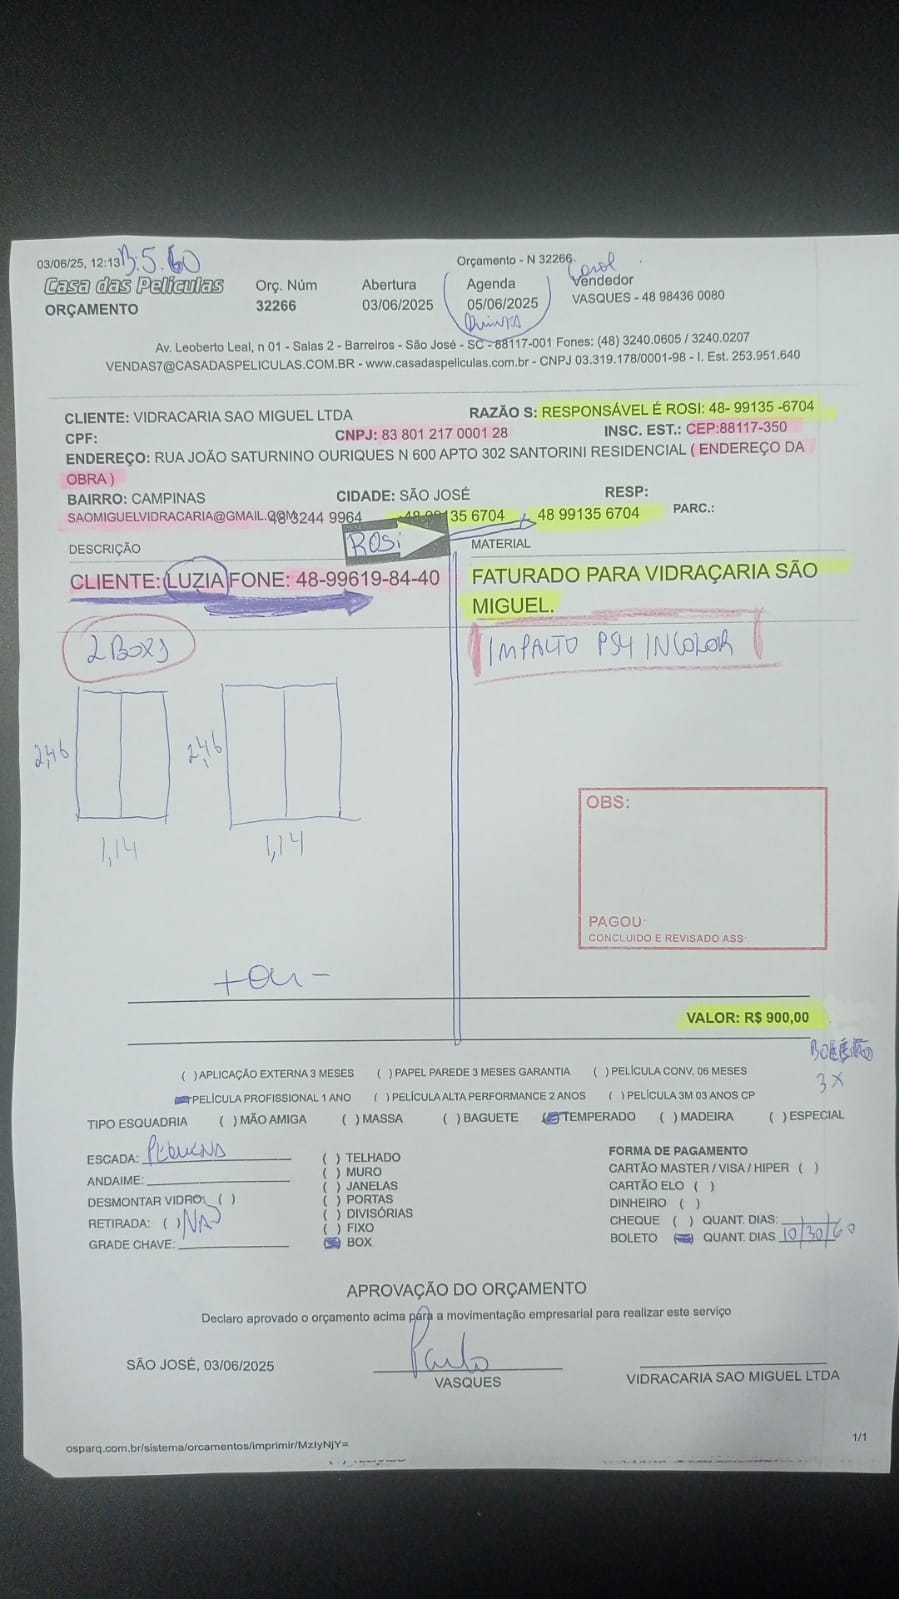 03/06/25, 12:13
Orçamento - N 32266
Casa das Películas
ORÇAMENTO
Orç. Núm
32266
Abertura
03/06/2025
Agenda
05/06/2025
Quinta
Carol
Vendedor
VASQUES - 48 98436 0080
Av. Leoberto Leal, n 01 - Salas 2 - Barreiros - São José - SC - 88117-001 Fones: (48) 3240.0605 / 3240.0207
VENDAS7@CASADASPELICULAS.COM.BR - www.casadaspeliculas.com.br - CNPJ 03.319.178/0001-98 - I. Est. 253.951.640
CLIENTE: VIDRACARIA SAO MIGUEL LTDA
RAZÃO S: RESPONSÁVEL É ROSI: 48- 99135 -6704
CPF:
CNPJ: 83 801 217 0001 28
INSC. EST.: CEP:88117-350
ENDEREÇO: RUA JOÃO SATURNINO OURIQUES N 600 APTO 302 SANTORINI RESIDENCIAL ( ENDEREÇO DA
OBRA )
BAIRRO: CAMPINAS
CIDADE: SÃO JOSÉ
RESP:
SAOMIGUELVIDRACARIA@GMAIL.COM
48 3244 9964
35 6704
48 99135 6704
PARC.:
ROSi
DESCRIÇÃO
MATERIAL
CLIENTE: LUZIA FONE: 48-99619-84-40
FATURADO PARA VIDRAÇARIA SÃO
MIGUEL.
2 BOXS
IMPALTO PS4 INCOLOR
2,46
2,46
1,14
1,14
OBS:
PAGOU:
CONCLUIDO E REVISADO ASS:
+ ou -
VALOR: R$ 900,00
3X
( ) APLICAÇÃO EXTERNA 3 MESES ( ) PAPEL PAREDE 3 MESES GARANTIA ( ) PELÍCULA CONV, 06 MESES
PELÍCULA PROFISSIONAL 1 ANO ( ) PELÍCULA ALTA PERFORMANCE 2 ANOS ( ) PELÍCULA 3M 03 ANOS CP
TIPO ESQUADRIA ( ) MÃO AMIGA ( ) MASSA ( ) BAGUETE TEMPERADO ( ) MADEIRA ( ) ESPECIAL
ESCADA: PEQUENA
ANDAIME:
DESMONTAR VIDRO: ( )
RETIRADA: ( ) NÃO
GRADE CHAVE:
( ) TELHADO
( ) MURO
( ) JANELAS
( ) PORTAS
( ) DIVISÓRIAS
( ) FIXO
BOX
FORMA DE PAGAMENTO
CARTÃO MASTER / VISA / HIPER ( )
CARTÃO ELO ( )
DINHEIRO ( )
CHEQUE ( ) QUANT. DIAS:
BOLETO QUANT. DIAS 10/30/60
APROVAÇÃO DO ORÇAMENTO
Declaro aprovado o orçamento acima para a movimentação empresarial para realizar este serviço
SÃO JOSÉ, 03/06/2025
Paulo
VASQUES
VIDRACARIA SAO MIGUEL LTDA
osparq.com.br/sistema/orcamentos/imprimir/MzIyNjY=
1/1